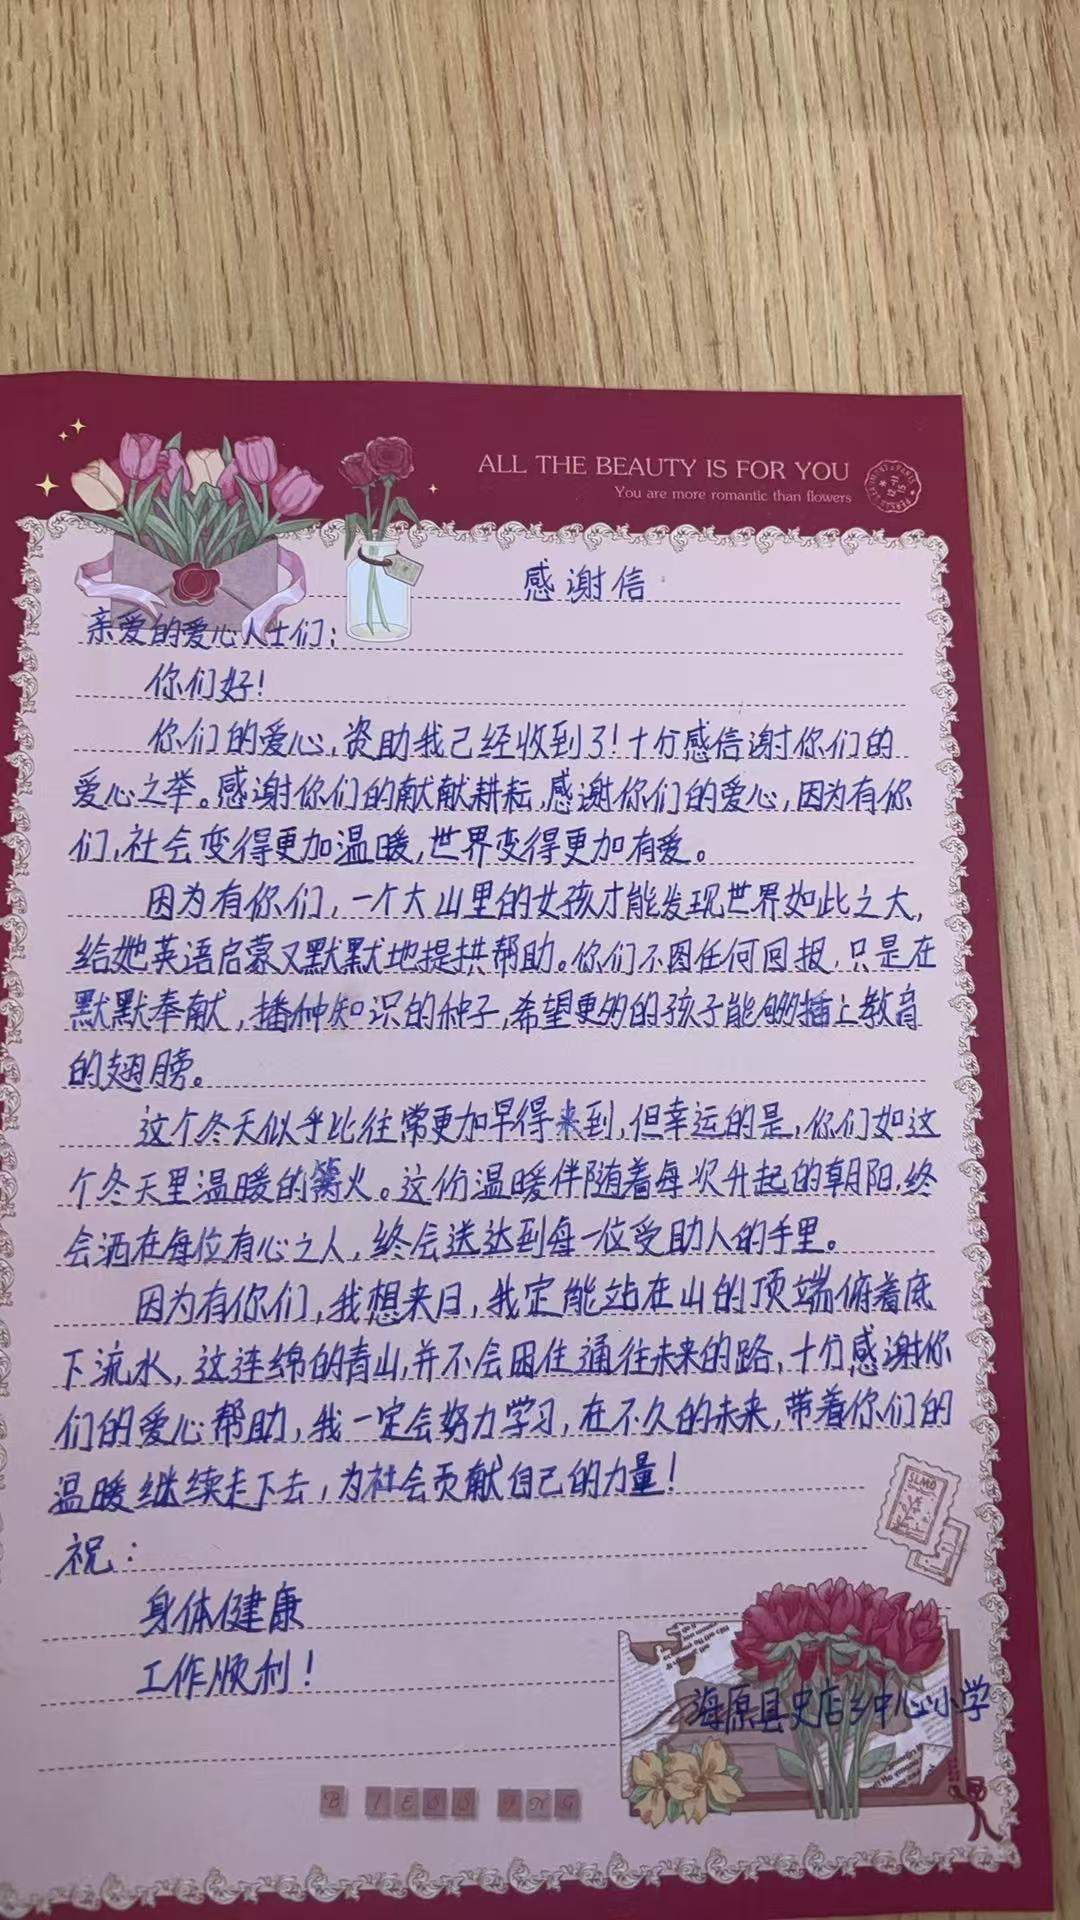 ALL THE BEAUTY IS FOR YOU
You are more romantic than flowers
感谢信
亲爱的爱心人士们：
你们好！
你们的爱心，资助我已经收到了！十分感信谢你们的
爱心之举。感谢你们的献献耕耘，感谢你们的爱心，因为有你
们，社会变得更加温暖，世界变得更加有爱。
因为有你们，一个大山里的女孩才能发现世界如此之大，
给她英语启蒙又默默地提拱帮助。你们不图任何回报，只是在
默默奉献，播种知识的种子，希望更多的孩子能够插上教育
的翅膀。
这个冬天似乎比往常更加早得来到，但幸运的是，你们如这
个冬天里温暖的篝火。这份温暖伴随着每次升起的朝阳，终
会洒在每位有心之人，终会送达到每一位受助人的手里。
因为有你们，我想来日，我定能站在山的顶端俯着底
下流水，这连绵的青山，并不会困住通往未来的路，十分感谢你
们的爱心帮助，我一定会努力学习，在不久的未来，带着你们的
温暖继续走下去，为社会贡献自己的力量！
祝：
身体健康
工作顺利！
海原县史店乡中心小学
BLESSING
SLMO